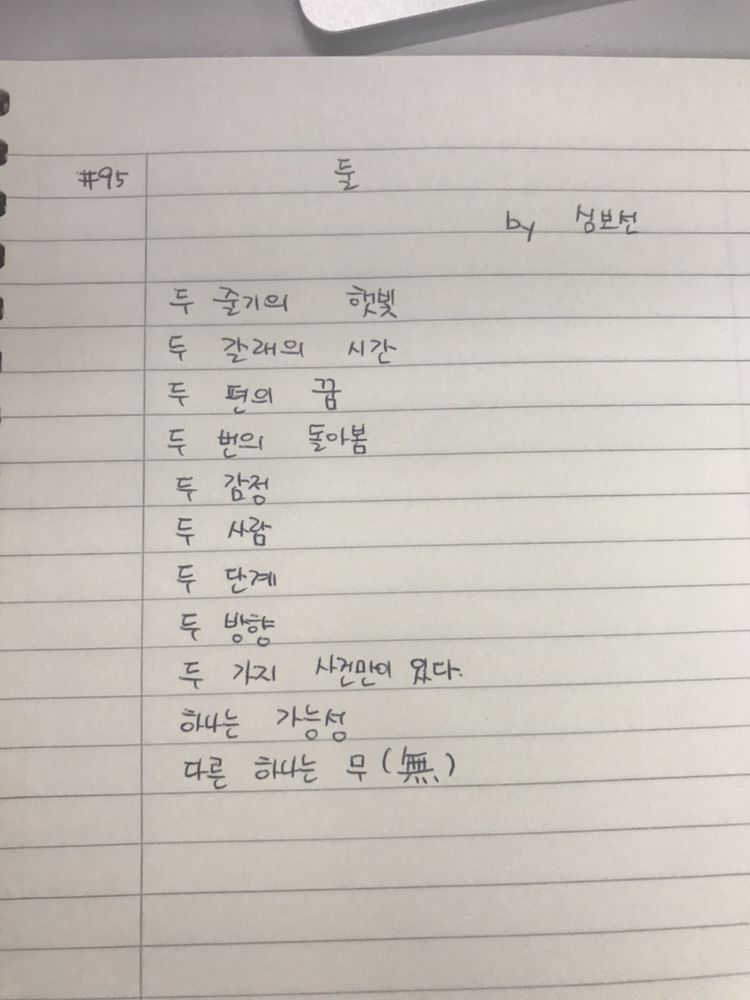 #95 둘
by 심보선
두 줄기의 햇빛
두 갈래의 시간
두 편의 꿈
두 번의 돌아봄
두 감정
두 사람
두 단계
두 방향
두 가지 사건만이 있다.
하나는 가능성
다른 하나는 무(無)